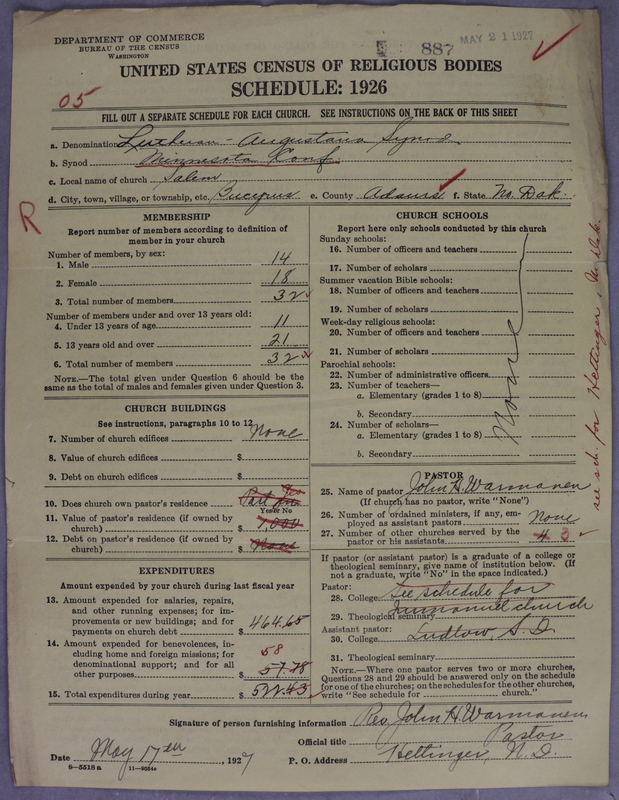 DEPARTMENT OF COMMERCE
BUREAU OF THE CENSUS
WASHINGTON
887
MAY 21 1927
UNITED STATES CENSUS OF RELIGIOUS BODIES
SCHEDULE: 1926
05
FILL OUT A SEPARATE SCHEDULE FOR EACH CHURCH. SEE INSTRUCTIONS ON THE BACK OF THIS SHEET
a. Denomination Lutheran - Augustana Synod
b. Synod Minnesota Conf
c. Local name of church Salem
d. City, town, village, or township, etc. Bucyrus e. County Adams f. State No. Dak.
R
MEMBERSHIP
Report number of members according to definition of member in your church
Number of members, by sex:
1. Male 14
2. Female 18
3. Total number of members 32
Number of members under and over 13 years old:
4. Under 13 years of age 11
5. 13 years old and over 21
6. Total number of members 32
NOTE.—The total given under Question 6 should be the same as the total of males and females given under Question 3.
CHURCH BUILDINGS
See instructions, paragraphs 10 to 12
7. Number of church edifices None
8. Value of church edifices $
9. Debt on church edifices $
10. Does church own pastor's residence Part in Yes
Yes or No
11. Value of pastor's residence (if owned by church) $ 7,000
12. Debt on pastor's residence (if owned by church) $ None
EXPENDITURES
Amount expended by your church during last fiscal year
13. Amount expended for salaries, repairs, and other running expenses; for improvements or new buildings; and for payments on church debt $ 464.65
14. Amount expended for benevolences, including home and foreign missions; for denominational support; and for all other purposes $ 57.78
58
15. Total expenditures during year $ 522.43
CHURCH SCHOOLS
Report here only schools conducted by this church
Sunday schools:
16. Number of officers and teachers
17. Number of scholars
Summer vacation Bible schools:
18. Number of officers and teachers
19. Number of scholars
Week-day religious schools:
20. Number of officers and teachers
21. Number of scholars
Parochial schools:
22. Number of administrative officers
23. Number of teachers—
a. Elementary (grades 1 to 8)
b. Secondary
24. Number of scholars—
a. Elementary (grades 1 to 8)
b. Secondary
None
see sch. for Hettinger, No. Dak.
PASTOR
25. Name of pastor John H. Warmanen
(If church has no pastor, write "None")
26. Number of ordained ministers, if any, employed as assistant pastors None
27. Number of other churches served by the pastor or his assistants 4 3
If pastor (or assistant pastor) is a graduate of a college or theological seminary, give name of institution below. (If not a graduate, write "No" in the space indicated.)
Pastor:
28. College See schedule for
29. Theological seminary Immanuel church
Assistant pastor:
30. College Ludlow S.D.
31. Theological seminary
NOTE.—Where one pastor serves two or more churches, Questions 28 and 29 should be answered only on the schedule for one of the churches; on the schedules for the other churches, write "See schedule for church."
Signature of person furnishing information Rev. John H. Warmanen
Official title Pastor
Date May 17th, 1927 P. O. Address Hettinger, N. D.
8—5518 a 11—9054